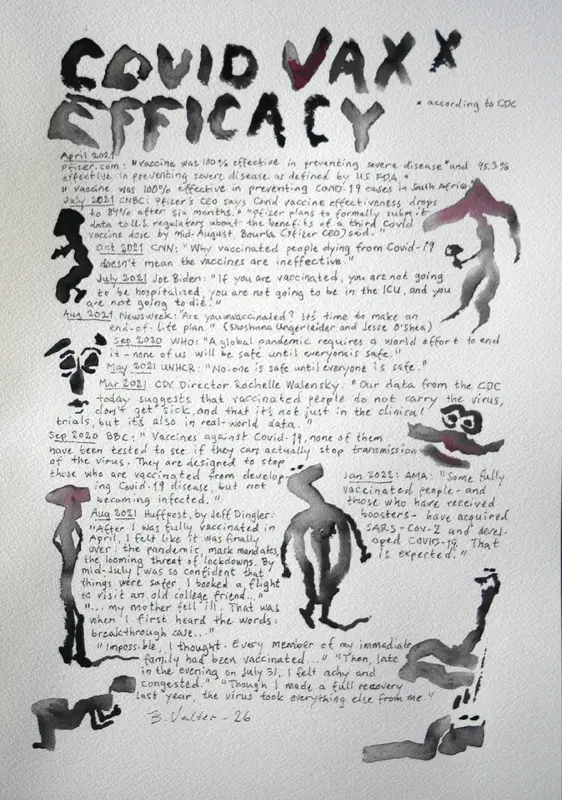 COVID VAXX
EFFICACY
* according to CDC
April 2021
Pfizer.com: "Vaccine was 100% effective in preventing severe disease* and 95.3%
effective in preventing severe disease as defined by US FDA."
"Vaccine was 100% effective in preventing COVID-19 cases in South Africa."
July 2021 CNBC: Pfizer's CEO says Covid vaccine effectiveness drops
to 84% after six months. "Pfizer plans to formally submit
data to U.S. regulators about the benefits of a third Covid
vaccine dose by mid-August, Bourla (Pfizer CEO) said."
Oct 2021 CNN: "Why vaccinated people dying from Covid-19
doesn't mean the vaccines are ineffective."
July 2021 Joe Biden: "If you are vaccinated, you are not going
to be hospitalized, you are not going to be in the ICU, and you
are not going to die."
Aug 2021 Newsweek: "Are you unvaccinated? It's time to make an
end-of-life plan." (Shoshana Ungerleider and Jesse O'Shea)
Sep 2020 WHO: "A global pandemic requires a world effort to end
it - none of us will be safe until everyone is safe."
May 2021 UNHCR: "No-one is safe until everyone is safe."
Mar 2021 CDC Director Rochelle Walensky: "Our data from the CDC
today suggests that vaccinated people do not carry the virus,
don't get sick, and that it's not just in the clinical
trials, but it's also in real-world data."
Sep 2020 BBC: "Vaccines against Covid-19, none of them
have been tested to see if they can actually stop transmission
of the virus. They are designed to stop
those who are vaccinated from develop-
ing Covid-19 disease, but not
becoming infected."
Jan 2022: AMA: "Some fully
vaccinated people - and
those who have received
boosters - have acquired
SARS-CoV-2 and devel-
oped COVID-19. That
is expected."
Aug 2021 Huffpost, by Jeff Dingler:
"After I was fully vaccinated in
April, I felt like it was finally
over: the pandemic, mask mandates,
the looming threat of lockdowns. By
mid-July I was so confident that
things were safer, I booked a flight
to visit an old college friend..."
"... my mother fell ill. That was
when I first heard the words:
breakthrough case..."
"Impossible, I thought. Every member of my immediate
family had been vaccinated..." "Then, late
in the evening on July 31, I felt achy and
congested." "Though I made a full recovery
last year, the virus took everything else from me."
B. Valter - 26